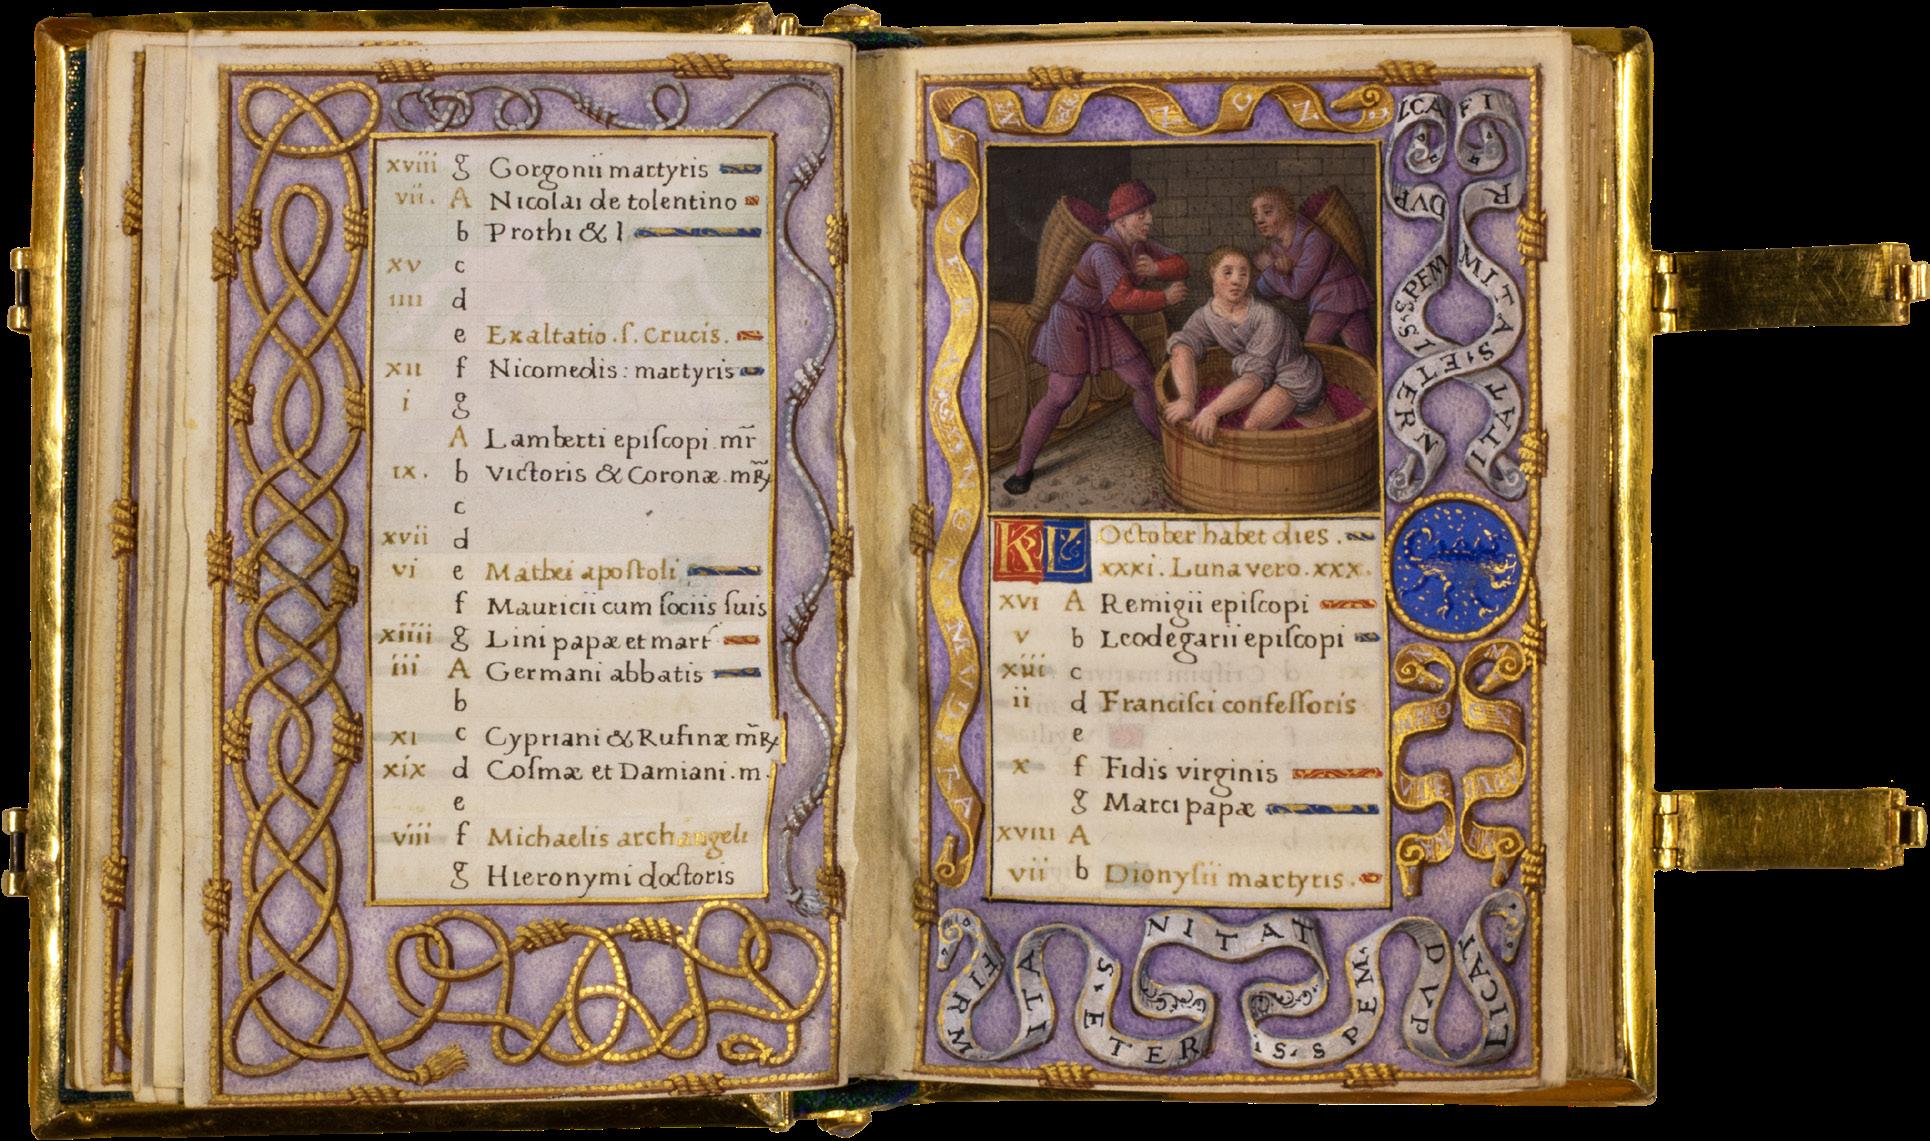 xviii g Gorgonii martyris
vii. A Nicolai de tolentino
b Prothi & I
xv c
iiii d
e Exaltatio . ſ. Crucis.
xii f Nicomedis : martyris
i g
A Lamberti epiſcopi . mr̄
ix. b Victoris & Coronæ . mr̄ꝝ
c
xvii d
vi e Mathei apoſtoli
f Mauricii cum ſociis ſuis
xiiii g Lini papæ et mart
iii A Germani abbatis
b
xi c Cypriani & Rufinæ m̄ꝝ
xix d Coſmæ et Damiani . m.
e
viii f Michaelis archangeli
g Hieronymi doctoris
KL October habet dies .
xxxi . Luna vero . xxx.
xvi A Remigii epiſcopi
v b Leodegarii epiſcopi
xiii c
ii d Franciſci confeſſoris
e
x f Fidis virginis
g Marci papæ
xviii A
vii b Dionyſii martyris .
FIRMITAS ETERNITATIS SPEM DVPLICAT
FIRMITAS ETERNITATIS SPEM DVPLICAT